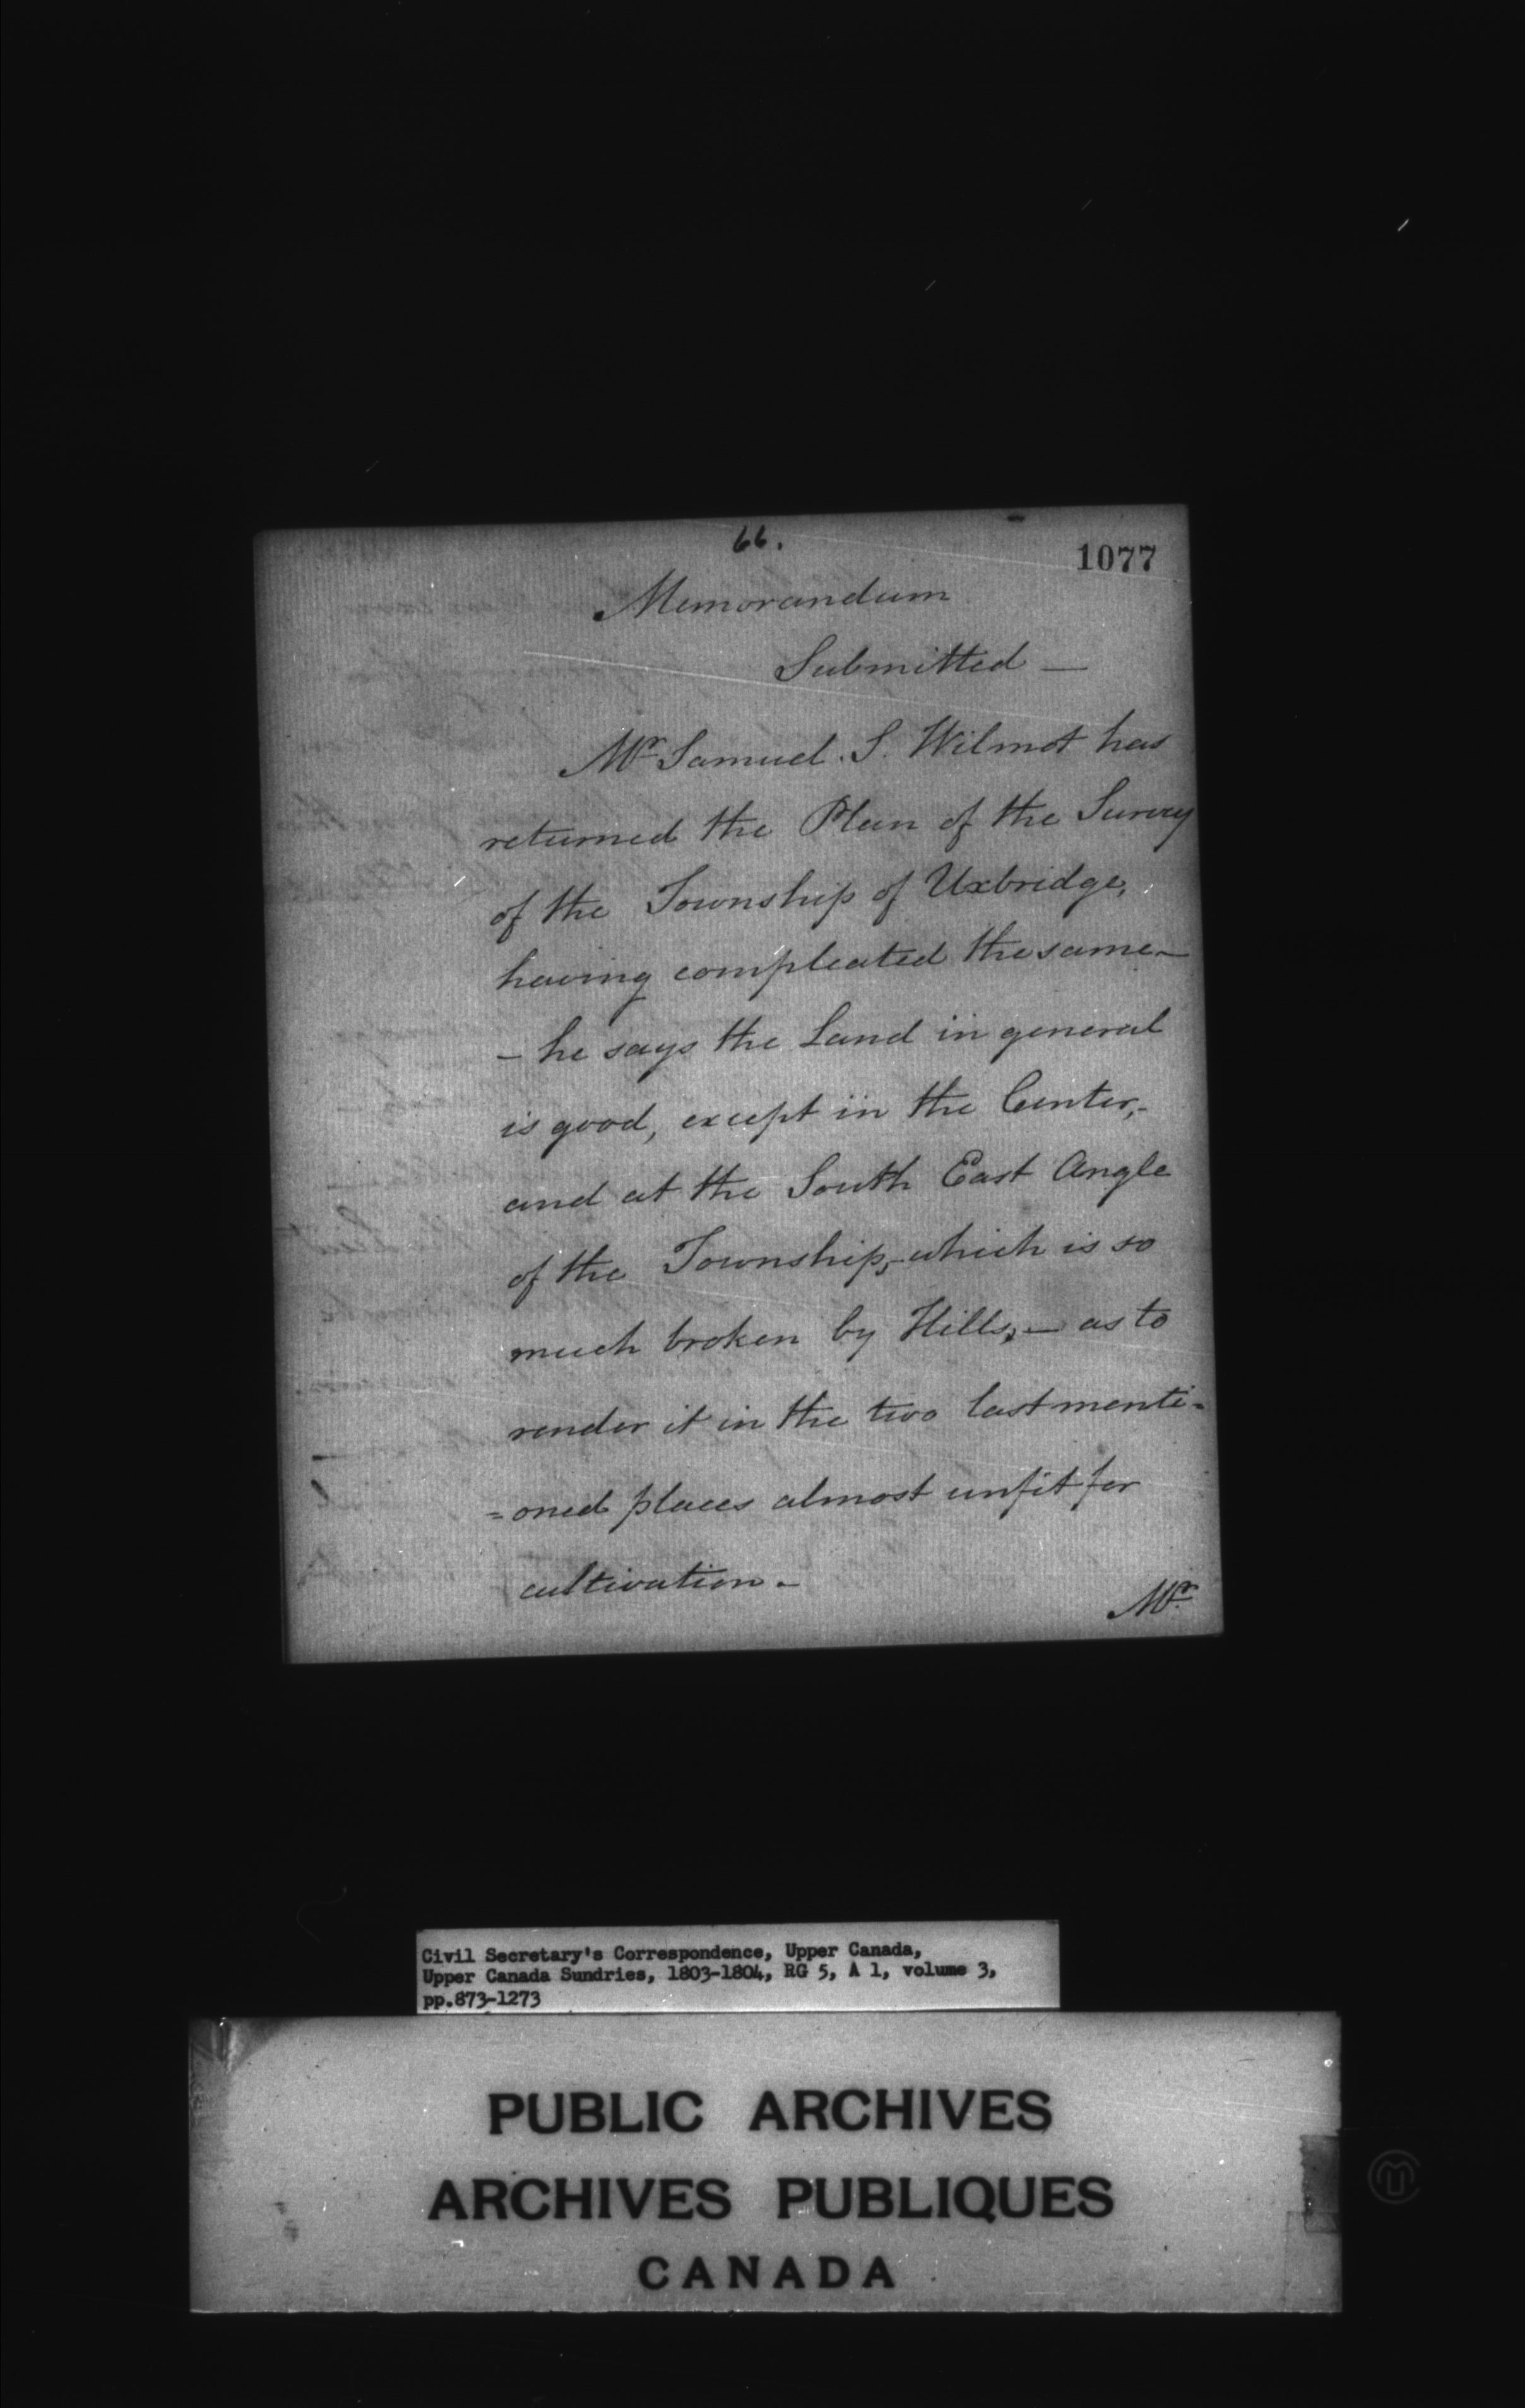 66.
1077
Memorandum
Submitted —
Mr Samuel. S. Wilmot has
returned the Plan of the Survey
of the Township of Uxbridge,
having compleated the same —
— he says the Land in general
is good, except in the Center, -
and at the South East Angle
of the Township, - which is so
much broken by Hills, — as to
render it in the two last menti=
=oned places almost unfit for
cultivation. -
Mr.
Civil Secretary's Correspondence, Upper Canada,
Upper Canada Sundries, 1803-1804, RG 5, A 1, volume 3,
pp.873-1273
PUBLIC ARCHIVES
ARCHIVES PUBLIQUES
CANADA